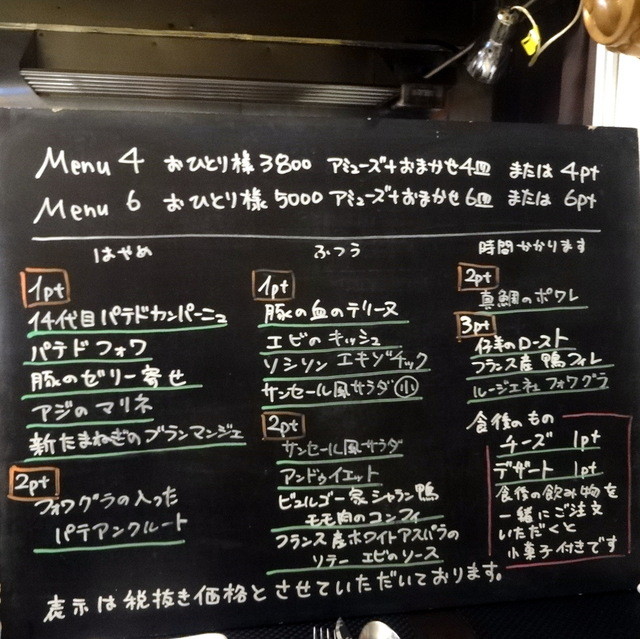 Menu 4 おひとり様 3800 アミューズ+おまかせ4皿 または 4pt
Menu 6 おひとり様 5000 アミューズ+おまかせ6皿 または 6pt
はやめ
1pt
14代目パテドカンパーニュ
パテドフォワ
豚のゼリー寄せ
アジのマリネ
新たまねぎのブランマンジェ
2pt
フォワグラの入った
パテアンクルート
ふつう
1pt
豚の血のテリーヌ
エビのキッシュ
ソシソン エキゾチック
サンセール風サラダ 小
2pt
サンセール風サラダ
アンドゥイエット
ビュルゴー家シャラン鴨
モモ肉のコンフィ
フランス産ホワイトアスパラの
ソテー エビのソース
時間かかります
2pt
真鯛のポワレ
3pt
仔羊のロースト
フランス産 鴨フィレ
ルージエ社 フォワグラ
食後のもの
チーズ 1pt
デザート 1pt
食後の飲み物を
一緒にご注文
いただくと
小菓子付きです
表示は税抜き価格とさせていただいております。